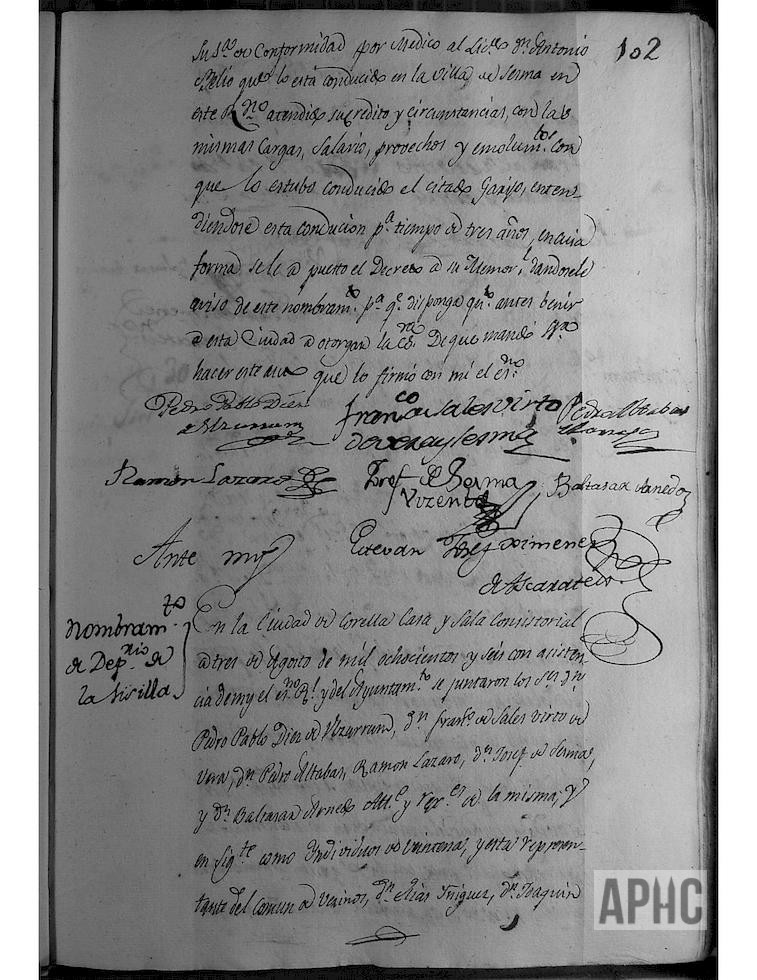 102
Su S.ªˢ de Conformidad por Medico al Lic.do D.n Antonio
Delio que lo está conducido en la Villa de Lerma en
este R.no atendido su credito y circunstancias, con las
mismas Cargas, Salario, provechos y emolum.tos con
que lo estubo conducido el citado Garijo, enten-
diendose esta conducion p.a tiempo de tres años, en cuia
forma se le a puesto el Decreto a su Memor.l dandosele
aviso de este nombram.to p.a q.e disponga q.to antes benir
a esta Ciudad a otorgar la es.ra De que mandó S.ria
hacer este auto que lo firmó con mi el es.no
Pedro Pablo Diez
de Ulzurrun
Fran.co de Sales Virto
de Vera y
Pedro Altabas
Ramon Lazaro
Josef de Sesma
Vicente
Baltasar Arnedo
Ante my
Estevan Josef Ximenez
de Ascarate
Nombram.to
de Dep.rio de
la Sisilla
En la Ciudad de Corella Casa y Sala Consistorial
a tres de Agosto de mil ochocientos y seis con asisten-
cia de my el es.no R.l y del Ayuntam.to se juntaron los Ses. D.n
Pedro Pablo Diez de Ulzurrun, D.n Fran.co de Sales Virto de
Vera, D.n Pedro Altabas, Ramon Lazaro, D.n Josef de Sesma,
y D.n Baltasar Arnedo Alc.e y Rex.es de la misma, y
en sig.te como Individuos de Veintena, y esta represen-
tante del comun de Vecinos, D.n Elias Iñiguez, D.n Joaquin
APHC